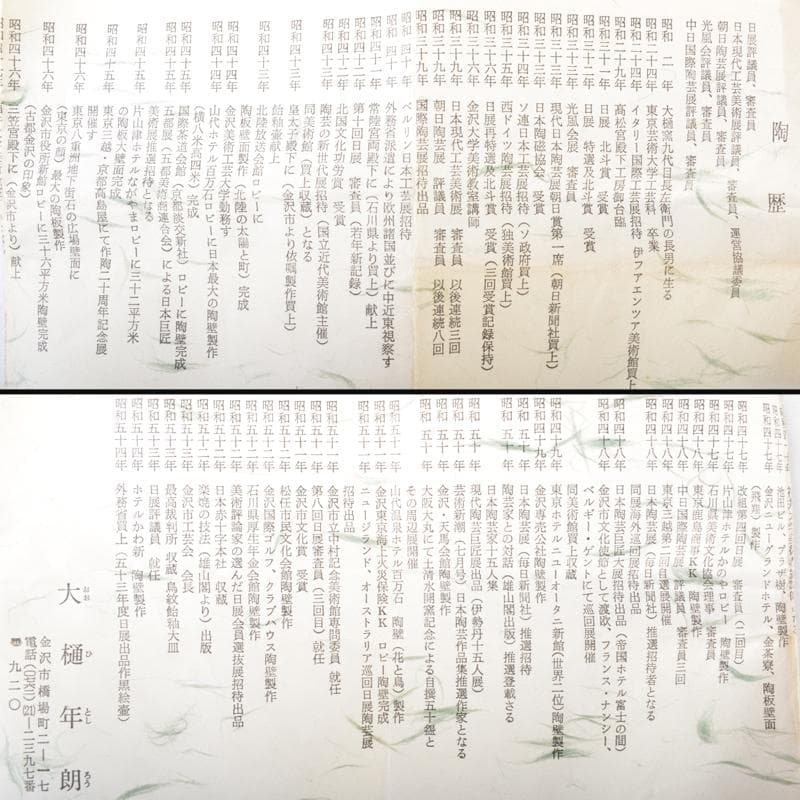 陶歴
日展評議員、審査員
日本現代工芸美術展評議員、審査員、運営協議委員
朝日陶芸展評議員、審査員
光風会評議員、審査員
中日国際陶芸展評議員、審査員
昭和二年 大樋窯九代目長左衛門の長男に生る
昭和二十四年 東京芸術大学工芸科 卒業
昭和二十四年 イタリー国際工芸展招待 伊フアエンツア美術館買上
昭和二十九年 高松宮殿下工房御台臨
昭和三十一年 日展 北斗賞 受賞
昭和三十二年 日展 特選及北斗賞 受賞
昭和三十三年 光風会展 審査員
昭和三十三年 現代日本陶芸展朝日賞第一席(朝日新聞社買上)
日本陶磁協会賞 受賞
ソ連日本工芸展招待(ソ政府買上)
昭和三十五年 西ドイツ陶芸展招待(独美術館買上)
昭和三十六年 日展再特選及北斗賞 受賞(三回受賞記録保持)
金沢大学美術教室講師
日本現代工芸美術展 審査員 以後連続三回
昭和三十九年 朝日陶芸展 評議員 審査員 以後連続八回
昭和三十九年 国際陶芸展招待出品
昭和四十年 ベルリン日本工芸展招待
外務省派遣により欧州諸国並びに中近東視察す
昭和四十一年 常陸宮両殿下に(石川県より買上)献上
第十回日展 審査員(若年新記録)
北国文化功労賞 受賞
陶芸の新世代展招待(国立近代美術館主催)
同美術館(買上収蔵)となる
昭和四十三年 皇太子殿下に(金沢市より依嘱製作買上)
飴釉壷献上
昭和四十三年 北陸放送会館ロビーに
陶板壁面製作(北陸の太陽と町)完成
昭和四十四年 金沢美術工芸大学勤務す
昭和四十四年 山代ホテル百万石ロビーに日本最大の陶壁製作
(横八米高四米)完成
昭和四十五年 国際茶道会館(京都淡交新社)ロビーに陶壁完成
昭和四十五年 五都展(五都美術商連合会)による日本巨匠
美術展推選招待となる
昭和四十五年 片山津ホテルながやまロビーに三十二平方米
の陶板大壁面完成
昭和四十六年 東京三越・京都高島屋にて作陶二十周年記念展
開催す
昭和四十六年 東京八重洲地下街石の広場壁面に
(東京の顔)最大の陶板製作
昭和四十六年 金沢市役所新館ロビーに三十六平方米陶壁完成
(古都金沢の印象)
昭和四十六年 三笠宮殿下に(金沢市より)献上
池田ビル・プラザ樹、陶壁製作
昭和四十七年 金沢ニューグランドホテル、金茶寮、陶板壁面
(飛翔)製作
昭和四十七年 改組第四回日展 審査員(二回目)
昭和四十七年 片山津ホテルかのや ロビー 陶壁製作
昭和四十七年 石川県美術文化協会理事、審査員
昭和四十八年 東京鹿島商事KK 陶壁製作
昭和四十八年 中日国際陶芸展 評議員、審査員三回
東京三越第二回自選展開催
昭和四十八年 日本陶芸展(毎日新聞社)推選招待者となる
同展海外巡回展招待出品
昭和四十八年 日本陶芸巨匠大展招待出品(帝国ホテル富士の間)
昭和四十八年 金沢市文化使節として渡欧、フランス・ナンシー、
ベルギー・ゲントにて巡回展開催
同美術館買上収蔵
昭和四十九年 東京ホテルニューオータニ新館(世界二位)陶壁製作
昭和四十九年 金沢専売公社陶壁製作
日本陶芸展(毎日新聞社)推選招待
昭和五十年 陶芸家との対話(雄山閣出版)推選登載さる
日本陶芸家十五人集
昭和五十年 現代陶芸巨匠展出品(伊勢丹十五人展)
昭和五十年 芸術新潮(七月号)日本陶芸作品集推選作家となる
昭和五十年 金沢・天馬会館陶壁製作
昭和五十年 大阪大丸にて土清水開窯記念による自撰五十盌と
その周辺展開催
昭和五十一年 山代温泉ホテル百万石 陶壁(花と鳥)製作
昭和五十一年 金沢東京海上火災保険KK ロビー陶壁完成
ニュージーランド、オーストラリア巡回日展陶芸展
招待出品
昭和五十一年 金沢市立中村記念美術館専門委員 就任
昭和五十一年 第八回日展審査員(三回目)就任
金沢市文化賞 受賞
松任市民文化会館陶壁製作
昭和五十二年 金沢国際ゴルフ、クラブハウス陶壁製作
昭和五十二年 石川県厚生年金会館陶壁製作
昭和五十二年 美術評論家の選んだ日展会員選抜展招待出品
昭和五十二年 日本赤十字本社 収蔵
昭和五十二年 楽焼の技法(雄山閣より)出版
昭和五十三年 金沢市工芸会 会長
昭和五十三年 最高裁判所 収蔵 鳥紋飴釉大皿
昭和五十三年 日展評議員 就任
昭和五十四年 ホテルかわ新 陶壁製作
昭和五十四年 外務省買上(五十三年度日展出品作黒絵壷)
大樋年朗
おおひとしろう
金沢市橋場町二―一七
電話(〇七六二)(21)―二三九七番
〒九二〇